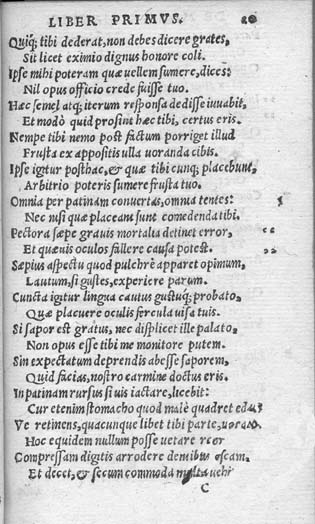 LIBER PRIMVS. 20
Quiq; tibi dederat, non debes dicere grates,
Sit licet eximio dignus honore coli.
Ipse mihi poteram quæ uellem sumere, dices:
Nil opus officio crede fuisse tuo.
Hæc semel atq; iterum responsa dedisse iuuabit,
Et modò quid prosint hæc tibi, certus eris.
Nempe tibi nemo post factum porriget illud
Frusta ex appositis ulla uoranda cibis.
Ipse igitur posthac, & quæ tibi cunq; placebunt,
Arbitrio poteris sumere frusta tuo.
Omnia per patinam conuertas, omnia tentes:
Nec nisi quæ placeant sunt comedenda tibi.
Pectora sæpe grauis mortalia detinet error,
Et quæuis oculos fallere causa potest.
Sæpius aspectu quod pulchrè apparet opimum,
Lautum, si gustes, experiere parum.
Cuncta igitur lingua cautus gustuq; probato,
Quæ placuere oculis fercula uisa tuis.
Si sapor est gratus, nec displicet ille palato,
Non opus esse tibi me monitore putem.
Sin expectatum deprendis abesse saporem,
Quid facias, nostro carmine doctus eris.
In patinam rursus si uis iactare, licebit:
Cur etenim stomacho quod malè quadret
Ve retinens, quacunque libet tibi parte,
Hoc equidem nullum posse uetare reor
Compressam digitis arrodere dentibus escam.
Et decet, & secum commoda multa
C